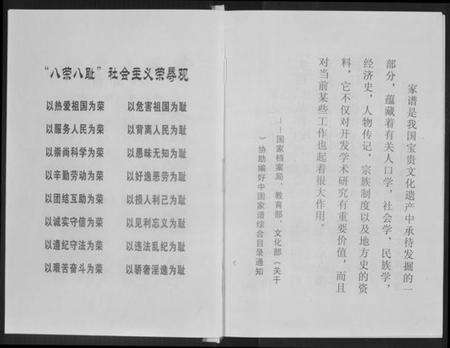 “八荣八耻”社会主义荣辱观
以热爱祖国为荣 以危害祖国为耻
以服务人民为荣 以背离人民为耻
以崇尚科学为荣 以愚昧无知为耻
以辛勤劳动为荣 以好逸恶劳为耻
以团结互助为荣 以损人利己为耻
以诚实守信为荣 以见利忘义为耻
以遵纪守法为荣 以违法乱纪为耻
以艰苦奋斗为荣 以骄奢淫逸为耻
家谱是我国宝贵文化遗产中承待发掘的一
部分,蕴藏着有关人口学,社会学,民族学,
经济史,人物传记,宗族制度以及地方史的资
料,它不仅对开发学术研究有重要价值,而且
对当前某些工作也起着很大作用。
——国家档案局、教育部、文化部(关于
协助编好中国家谱综合目录通知)